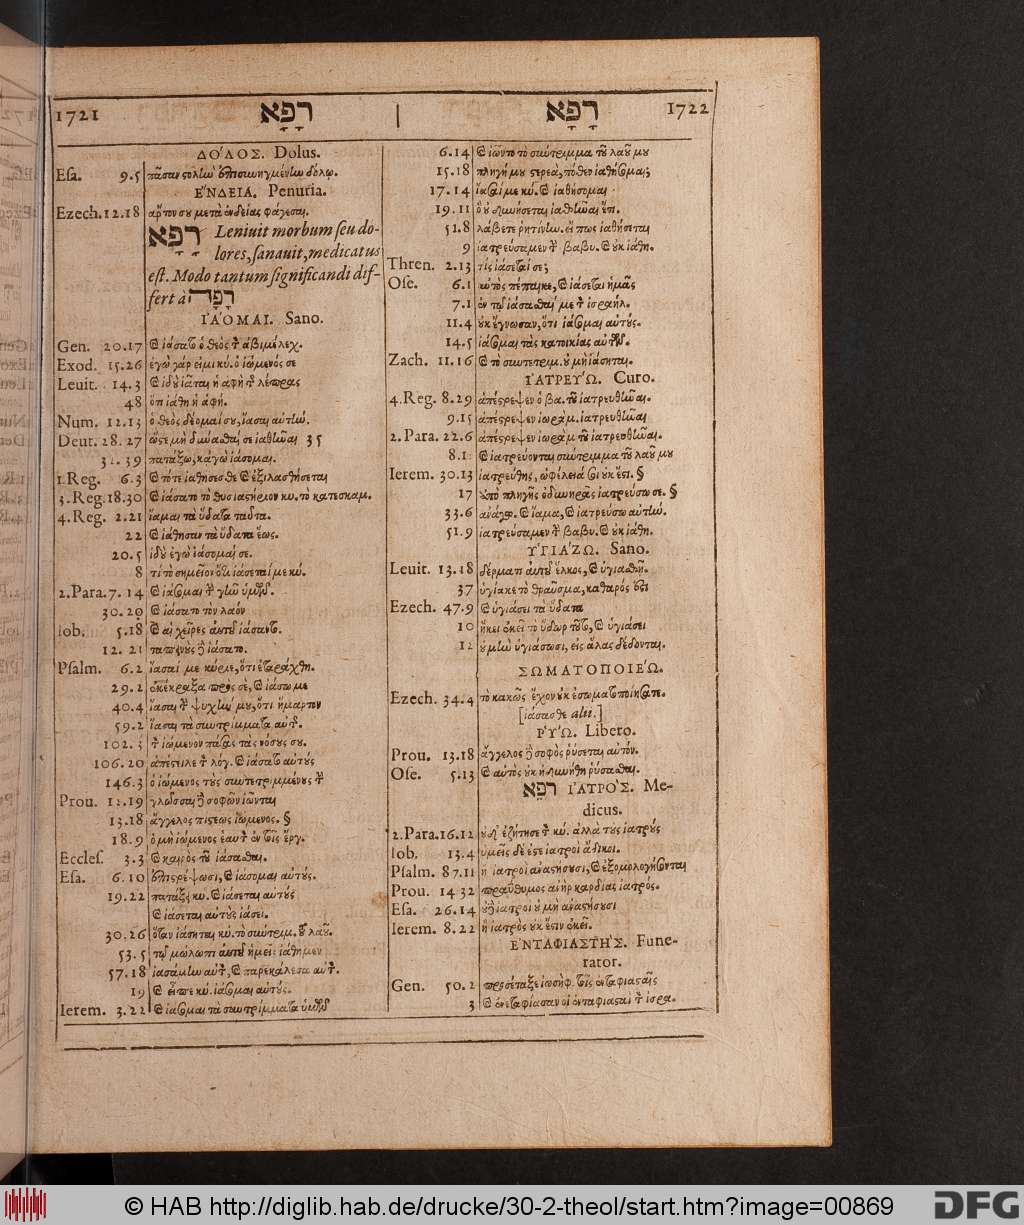 1721 רָפָא
ΔΌΛΟΣ. Dolus.
Esa. 9.5 πᾶσαν στολὴν ἐπισυνηγμένην δόλῳ.
ἘΝΔΕΙΑ. Penuria.
Ezech. 12.18 ἄρτον σου μετὰ ἐνδείας φάγεσαι.
רָפָא Leniuit morbum seu do-
lores, sanauit, medicatus
est. Modo tantum significandi dif-
fert a רָפָה
ἸΑΌΜΑΙ. Sano.
Gen. 20.17 καὶ ἰάσατο ὁ θεὸς τὸν ἀβιμέλεχ.
Exod. 15.26 ἐγὼ γάρ εἰμι κύ. ὁ ἰώμενός σε
Leuit. 14.3 καὶ ἰδοὺ ἰᾶται ἡ ἁφὴ τῆς λέπρας
48 ὅτι ἰάθη ἡ ἁφή.
Num. 12.13 ὁ θεὸς δέομαί σου, ἴασαι αὐτήν.
Deut. 28.27 ὥστε μὴ δύνασθαί σε ἰαθῆναι 35
32.39 πατάξω, κἀγὼ ἰάσομαι.
1.Reg. 6.3 καὶ τότε ἰαθήσεσθε καὶ ἐξιλασθήσεται
3.Reg. 18.30 καὶ ἰάσατο τὸ θυσιαστήριον κυ. τὸ κατεσκαμ.
4.Reg. 2.21 ἴαμαι τὰ ὕδατα ταῦτα.
22 καὶ ἰάθησαν τὰ ὕδατα ἕως.
20.5 ἰδοὺ ἐγὼ ἰάσομαί σε.
8 τί τὸ σημεῖον ὅτι ἰάσεταί με κύ.
2.Para. 7.14 καὶ ἰάσομαι τὴν γῆν ὑμῶν.
30.20 καὶ ἰάσατο τὸν λαόν
Iob. 5.18 καὶ αἱ χεῖρες αὐτοῦ ἰάσαντο.
12.21 ταπεινοὺς δὲ ἰάσατο.
Psalm. 6.2 ἴασαί με κύριε, ὅτι ἐταράχθη.
29.2 ἐκέκραξα πρός σε, καὶ ἰάσω με
40.4 ἴασαι τὴν ψυχήν μου, ὅτι ἥμαρτον
59.2 ἴασαι τὰ συντρίμματα αὐτῆς.
102.3 τὸν ἰώμενον πάσας τὰς νόσους σου.
106.20 ἀπέστειλε τὸν λόγ. καὶ ἰάσατο αὐτούς
146.3 ὁ ἰώμενος τοὺς συντετριμμένους τὴν
Prou. 12.19 γλῶσσαι δὲ σοφῶν ἰῶνται
13.18 ἄγγελος πίστεως ἰώμενος. §
18.9 ὁ μὴ ἰώμενος ἑαυτὸν ἐν τοῖς ἔργ.
Eccles. 3.3 καὶ καιρὸς τοῦ ἰάσασθαι.
Esa. 6.10 ἐπιστρέψωσι, καὶ ἰάσομαι αὐτούς.
19.22 πατάξει κύ. καὶ ἰάσεται αὐτούς
καὶ ἰάσεται αὐτοὺς ἰάσει.
30.26 ὅταν ἰάσηται κύ. τὸ σύντριμ. τοῦ λαοῦ.
53.5 τῷ μώλωπι αὐτοῦ ἡμεῖς ἰάθημεν
57.18 ἰασάμην αὐτὸν, καὶ παρεκάλεσα αὐτὸν.
19 καὶ εἶπε κύ. ἰάσομαι αὐτούς.
Ierem. 3.22 καὶ ἰάσομαι τὰ συντρίμματα ὑμῶν
רָפָא 1722
6.14 καὶ ἰῶντο τὸ σύντριμμα τοῦ λαοῦ μου
15.18 πληγή μου στερεὰ, πόθεν ἰαθήσομαι;
17.14 ἴασαί με κύ. καὶ ἰαθήσομαι
19.11 ὃ οὐ δυνήσεται ἰαθῆναι ἔτι.
51.8 λάβετε ῥητίνην. εἴ πως ἰαθήσεται
9 ἰατρεύσαμεν τὴν βαβυ. καὶ οὐκ ἰάθη.
Thren. 2.13 τίς ἰάσεταί σε;
Ose. 6.1 αὐτὸς πέπαικε, καὶ ἰάσεται ἡμᾶς
7.1 ἐν τῷ ἰάσασθαί με τὸν ἰσραήλ.
11.4 οὐκ ἔγνωσαν, ὅτι ἰάσομαι αὐτούς.
14.5 ἰάσομαι τὰς κατοικίας αὐτῶν.
Zach. 11.16 καὶ τὸ συντετριμ. οὐ μὴ ἰάσηται.
ἸΑΤΡΕΥΏ. Curo.
4.Reg. 8.29 ἀπέστρεψεν ὁ βα. τοῦ ἰατρευθῆναι.
9.15 ἀπέστρεψεν ἰωράμ. ἰατρευθῆναι
2.Para. 22.6 ἀπέστρεψεν ἰωράμ τοῦ ἰατρευθῆναι.
8.1 καὶ ἰατρεύονται σύντριμμα τοῦ λαοῦ μου
Ierem. 30.13 ἰατρεύθης, ὠφέλειά σοι οὐκ ἔστι. §
17 ἀπὸ πληγῆς ὀδυνηρᾶς ἰατρεύσω σε. §
33.6 ἀνάγω. καὶ ἴαμα, καὶ ἰατρεύσω αὐτήν.
51.9 ἰατρεύσαμεν τὴν βαβυ. καὶ οὐκ ἰάθη.
ὙΓΙΆΖΩ. Sano.
Leuit. 13.18 δέρματι αὐτοῦ ἕλκος, καὶ ὑγιασθῇ.
37 ὑγίακε τὸ θραῦσμα, καθαρός ἐστι
Ezech. 47.9 καὶ ὑγιάσει τὰ ὕδατα
10 ἥκει ἐκεῖ τὸ ὕδωρ τοῦτο, καὶ ὑγιάσει
12 οὐ μὴ ὑγιάσωσι, εἰς ἅλας δέδονται.
ΣΩΜΑΤΟΠΟΙΕΏ.
Ezech. 34.4 τὸ κακῶς ἔχον οὐκ ἐσωματοποιήσατε.
[ἰάσασθε alii.]
ῬΎΩ. Libero.
Prou. 13.18 ἄγγελος δὲ σοφὸς ῥύσεται αὐτόν.
Ose. 5.13 καὶ αὐτὸς οὐκ ἠδυνήθη ῥύσασθαι.
רֹפֵא ἸΑΤΡΌΣ. Me-
dicus.
2.Para. 16.12 οὐκ ἐζήτησε τὸν κύ. ἀλλὰ τοὺς ἰατρούς
Iob. 13.4 ὑμεῖς δέ ἐστε ἰατροὶ ἄδικοι.
Psalm. 87.11 ἢ ἰατροὶ ἀναστήσουσι, καὶ ἐξομολογήσονται
Prou. 14.32 πραΰθυμος ἀνὴρ καρδίας ἰατρός.
Esa. 26.14 οὐδὲ ἰατροὶ οὐ μὴ ἀναστήσουσι
Ierem. 8.22 ἢ ἰατρὸς οὐκ ἔστιν ἐκεῖ.
ἘΝΤΑΦΙΑΣΤΉΣ. Fune-
rator.
Gen. 50.2 προσέταξε ἰωσὴφ. τοῖς ἐνταφιασταῖς
3 καὶ ἐνεταφίασαν οἱ ἐνταφιασταὶ τὸν ἰσρα.
© HAB http://diglib.hab.de/drucke/30-2-theol/start.htm?image=00869
DFG